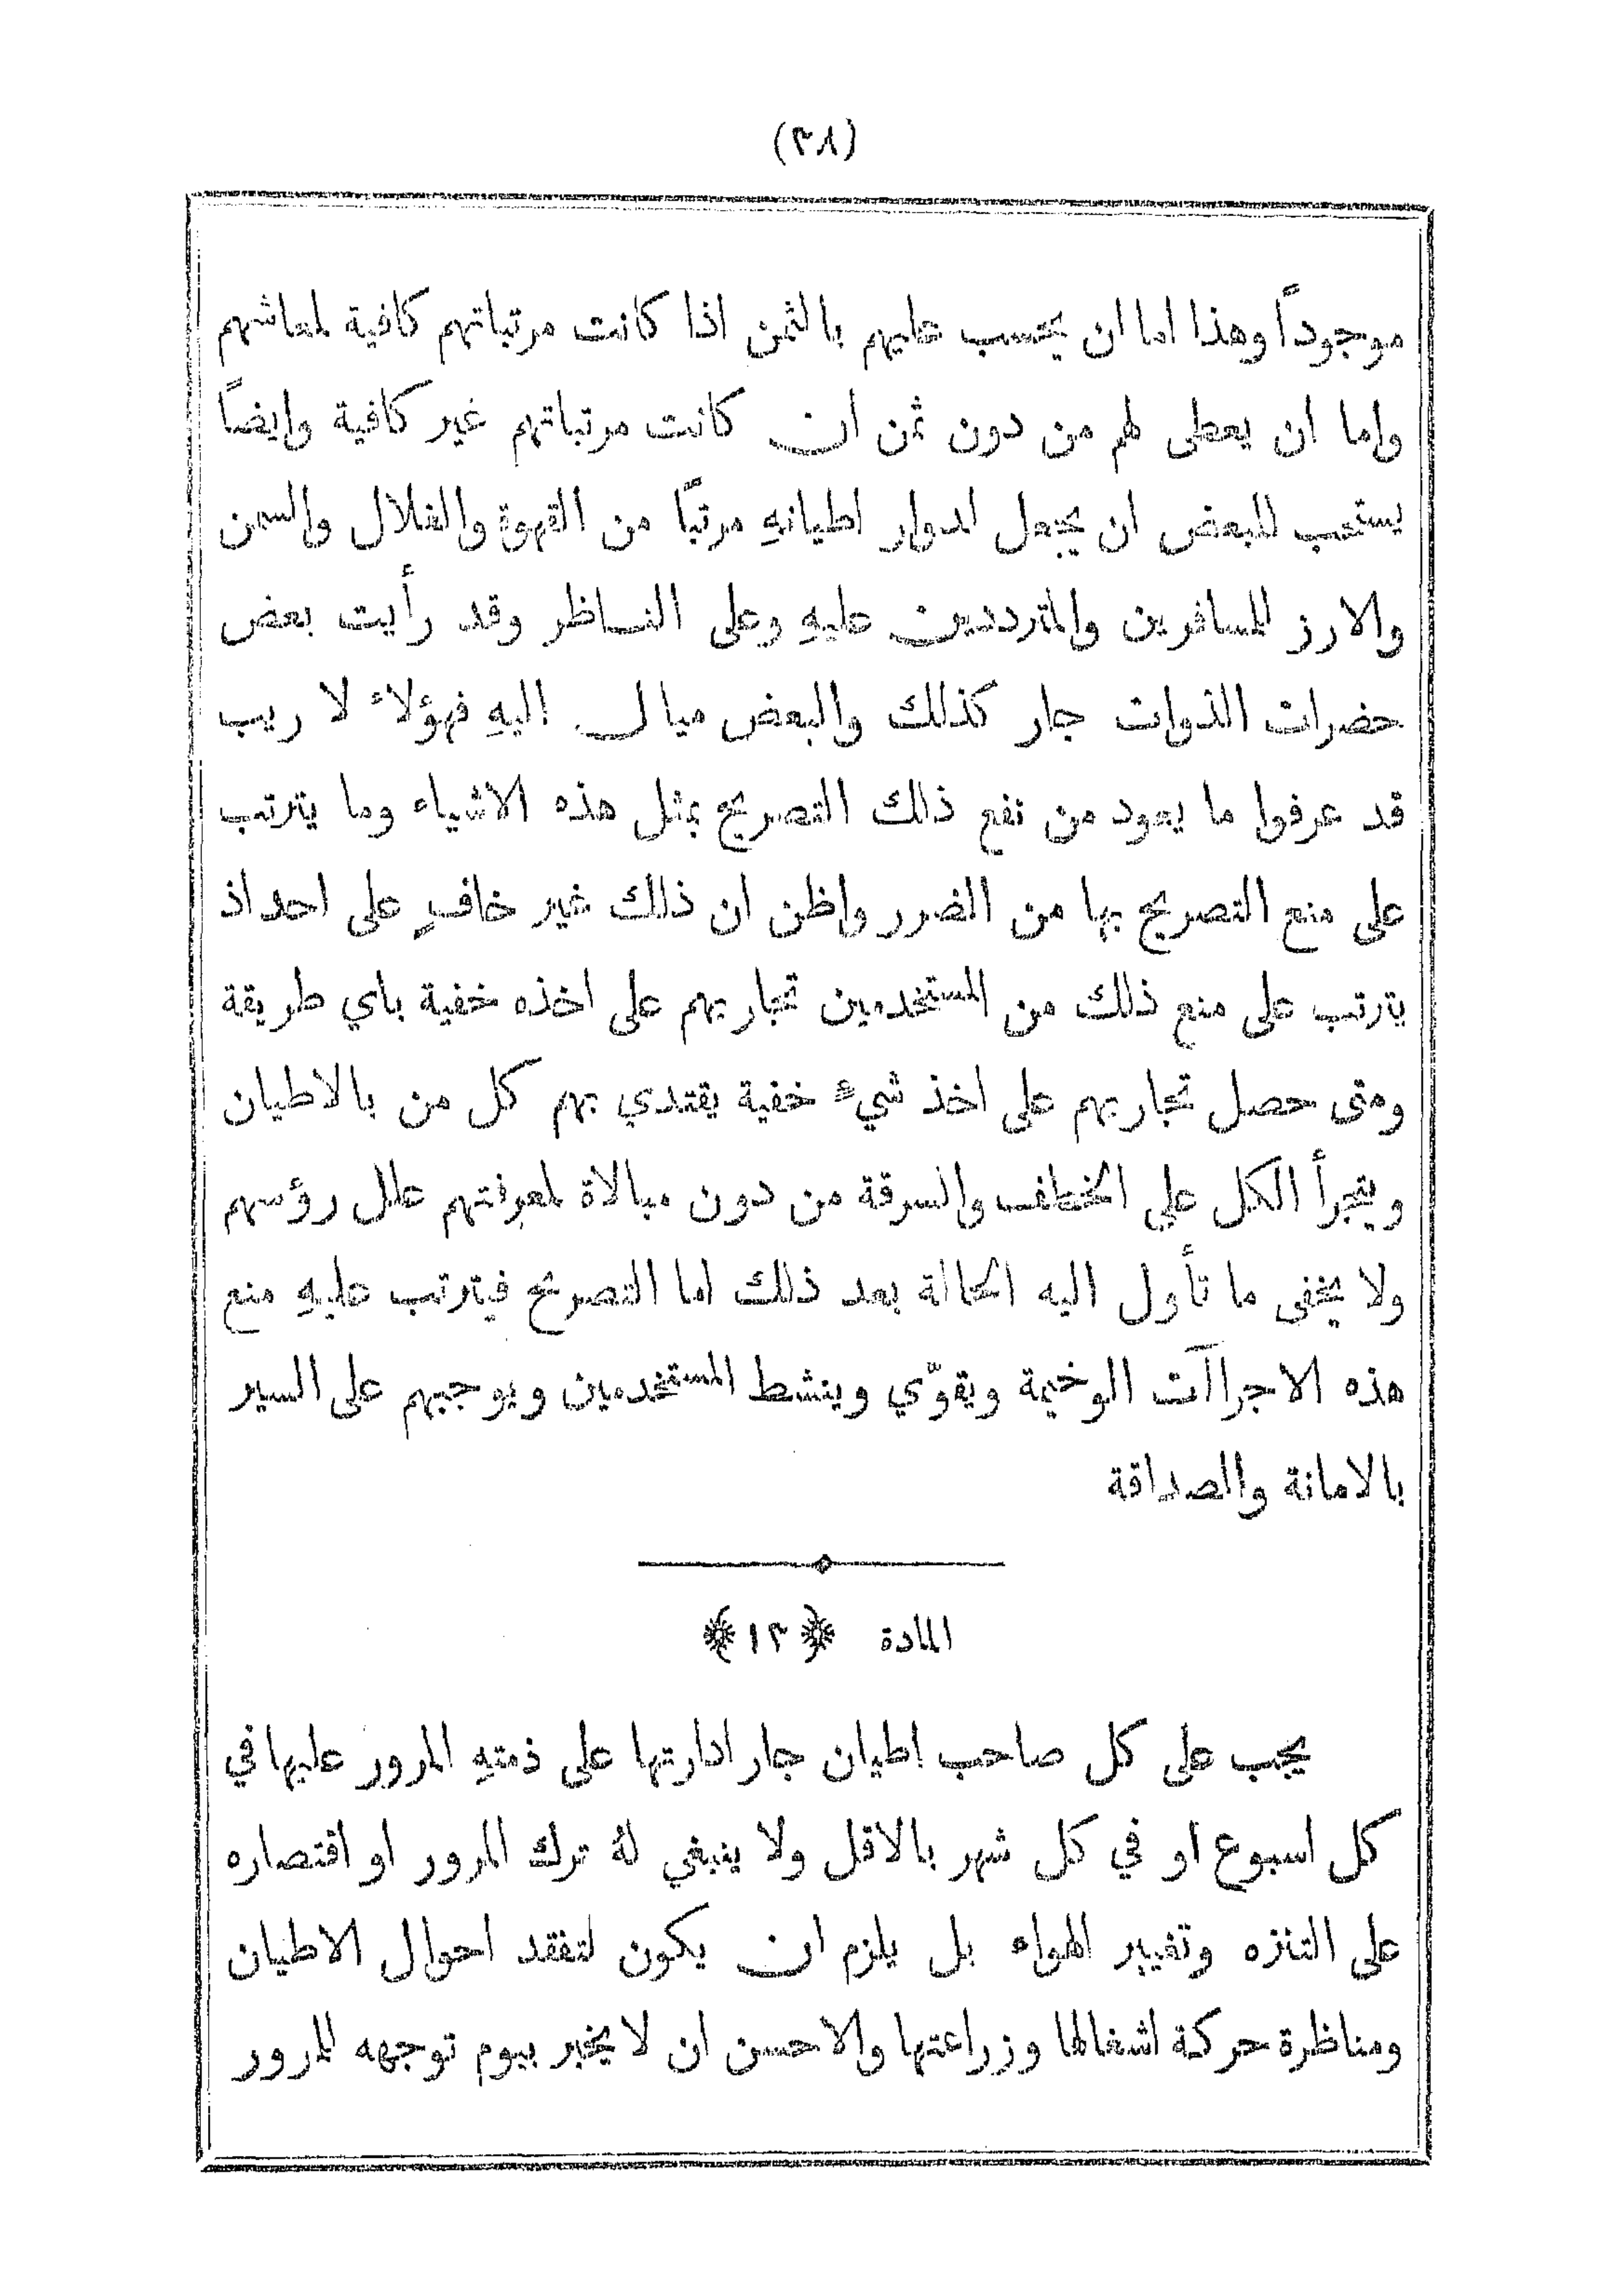 (٣٨)
موجوداً وهذا اما ان يحسب عليهم بالثمن اذا كانت مرتباتهم كافية لمعاشهم
واما ان يعطى لهم من دون ثمن ان كانت مرتباتهم غير كافية وايضاً
يستحب للبعض ان يجعل لدوار اطيانهِ مرتباً من القهوة والغلال والسمن
والارز للمسافرين والمترددين عليهِ وعلى الناظر وقد رأيت بعض
حضرات الذوات جار كذلك والبعض ميال اليهِ فهؤلاء لا ريب
قد عرفوا ما يعود من نفع ذلك التصريح بمثل هذه الاشياء وما يترتب
على منع التصريح بها من الضرر واظن ان ذلك غير خافٍ على احد اذ
يترتب على منع ذلك من المستخدمين تجاريهم على اخذه خفية باي طريقة
ومتى حصل تجاريهم على اخذ شيءٍ خفية يقتدي بهم كل من بالاطيان
ويتجرأ الكل علي الخطف والسرقة من دون مبالاة لمعرفتهم علل رؤسهم
ولا يخفى ما تأول اليه الحالة بعد ذلك اما التصريح فيترتب عليهِ منع
هذه الاجراآت الوخيمة ويقوّي وينشط المستخدمين ويوجبهم على السير
بالامانة والصداقة
المادة ﴿١٣﴾
يجب على كل صاحب اطيان جار ادارتها على ذمتهِ المرور عليها في
كل اسبوع او في كل شهر بالاقل ولا ينبغي لهُ ترك المرور او اقتصاره
على التنزه وتغيير الهواء بل يلزم ان يكون لتفقد احوال الاطيان
ومناظرة حركة اشغالها وزراعتها والاحسن ان لا يخبر بيوم توجهه للمرور